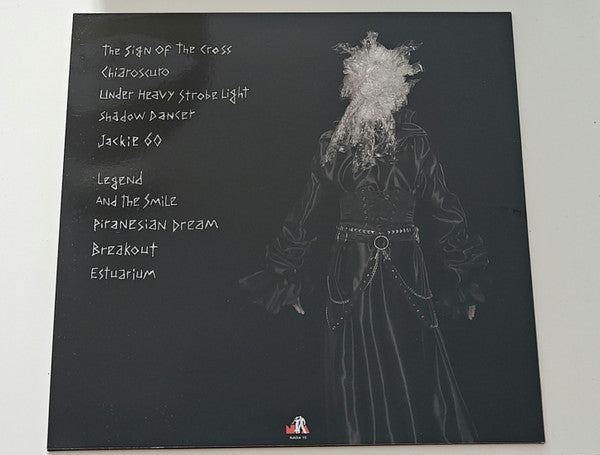 The Sign of The Cross
Chiaroscuro
Under Heavy Strobe Light
Shadow Dancer
Jackie 60
Legend
And The Smile
Piranesian Dream
Breakout
Estuarium